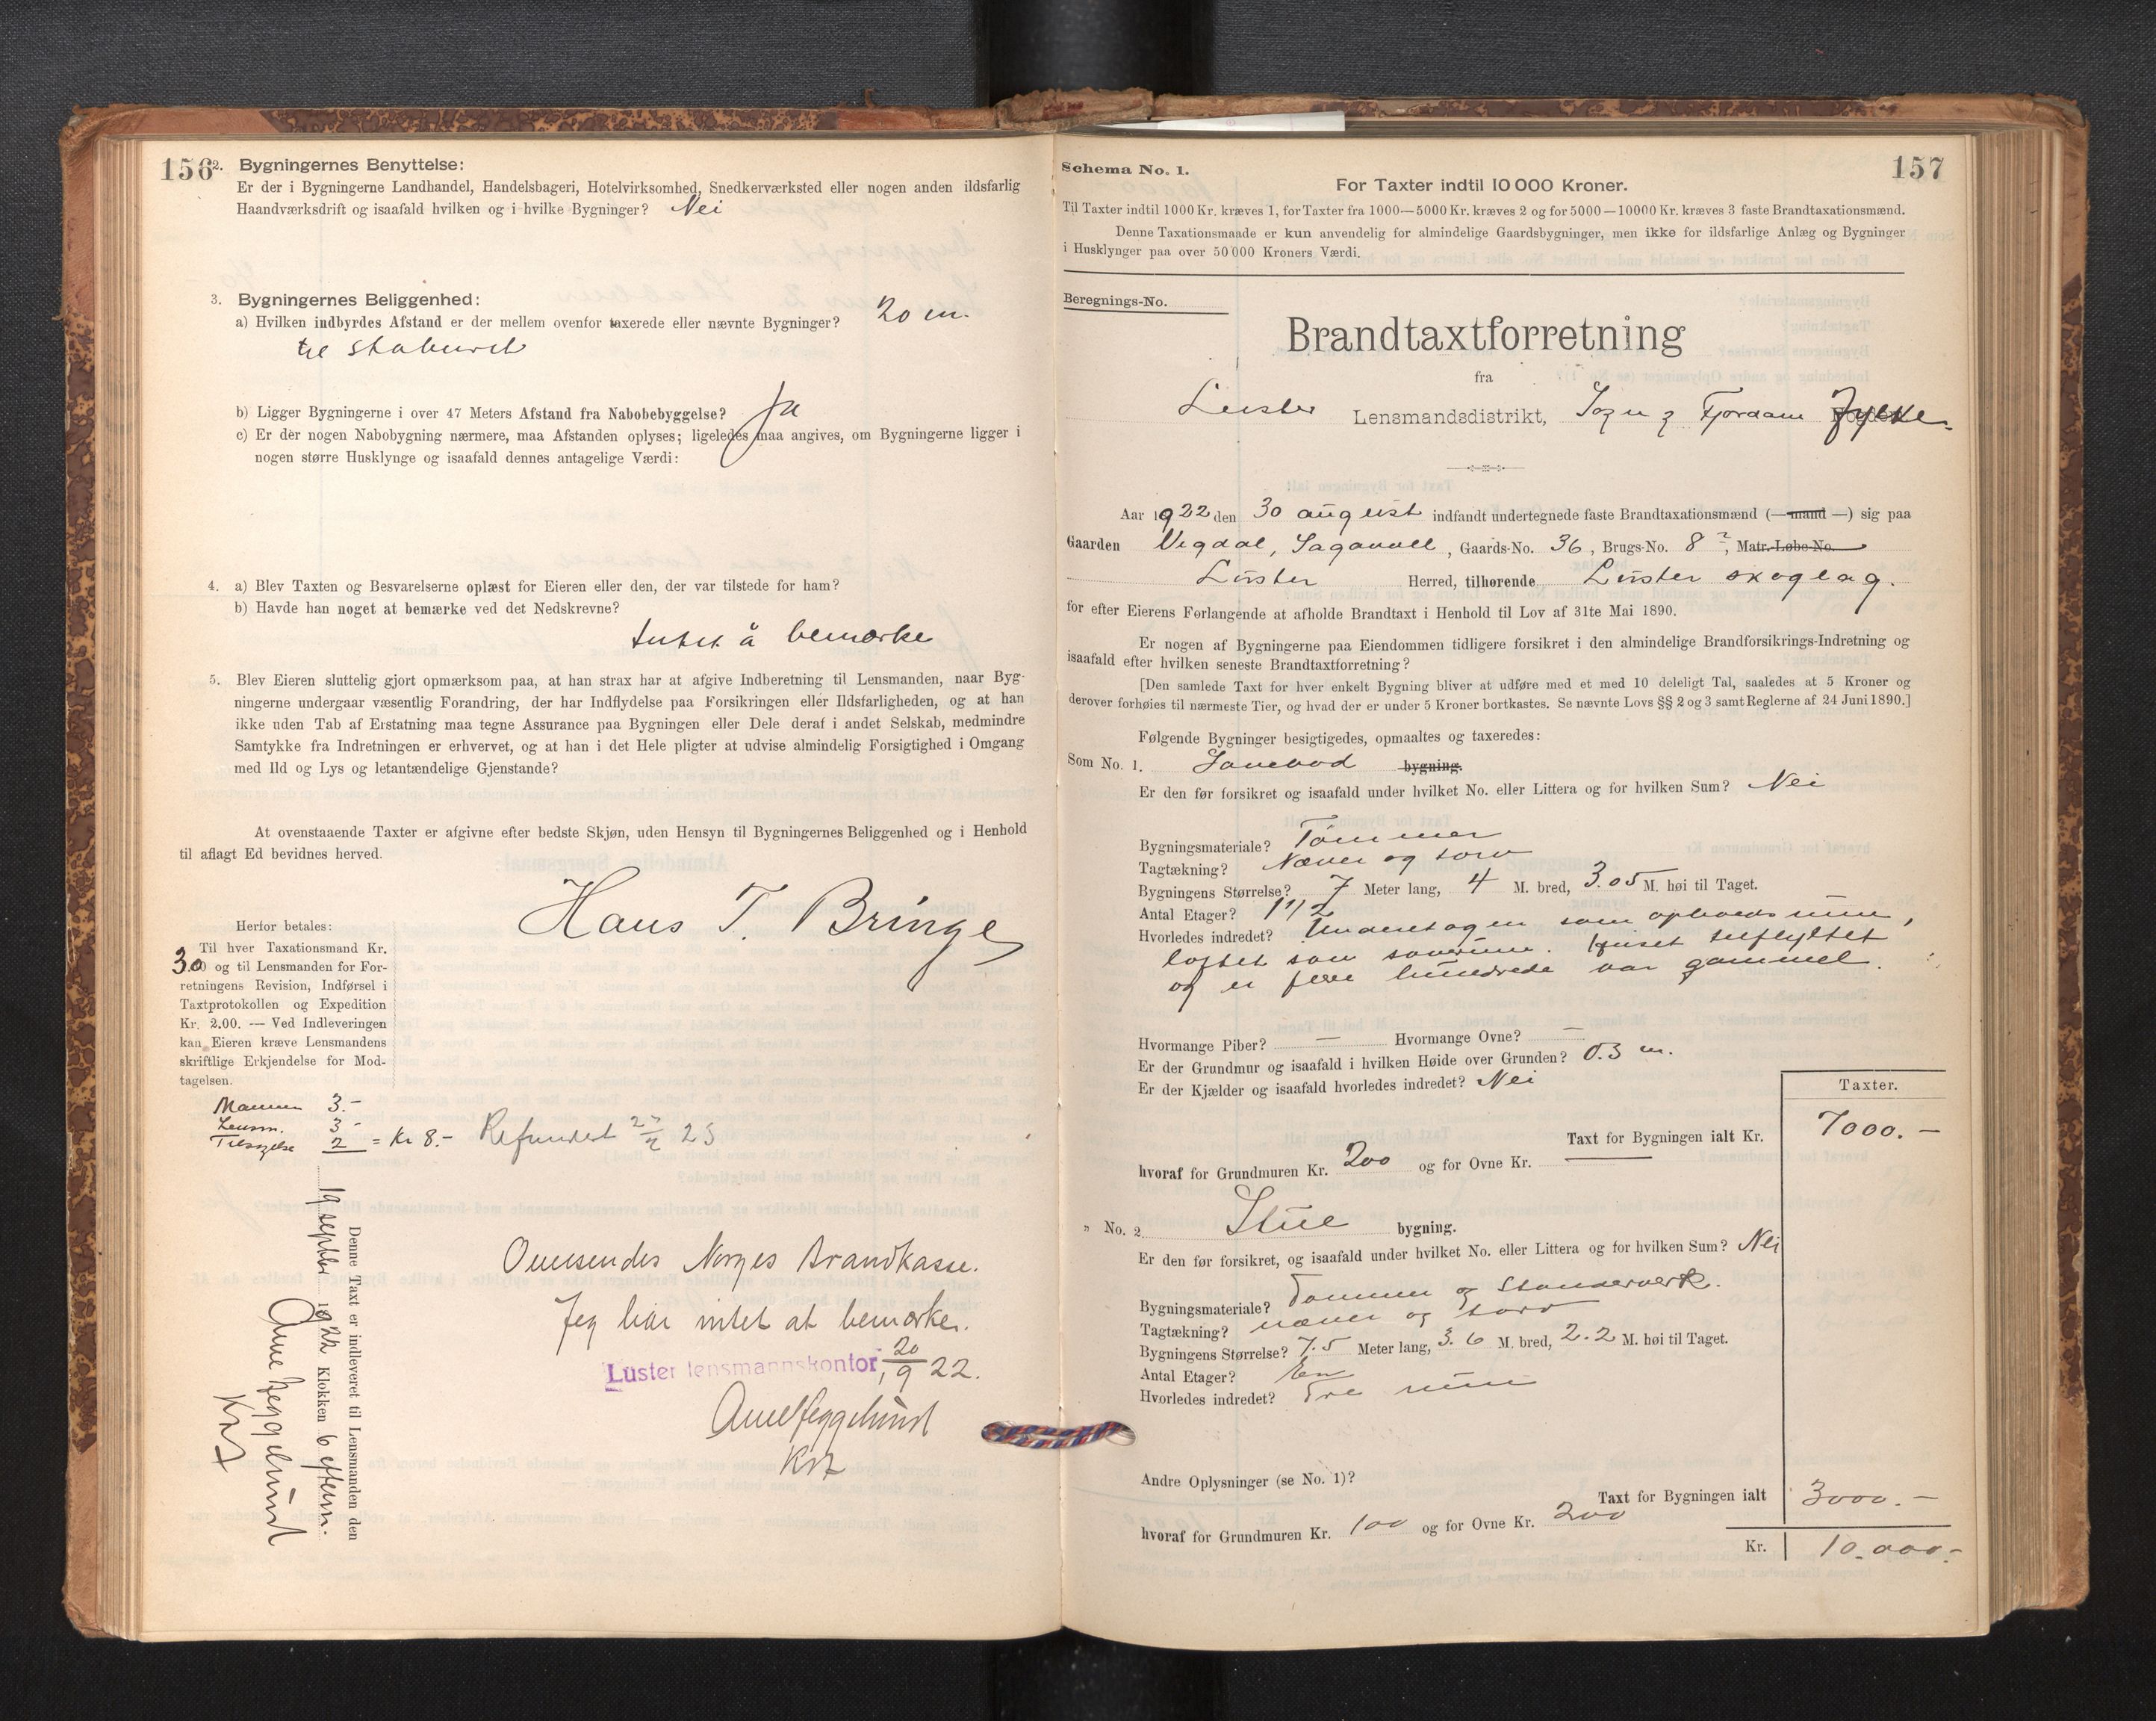 156
2. Bygningernes Benyttelse:
Er der i Bygningerne Landhandel, Handelsbageri, Hotelvirksomhed, Snedkerværksted eller nogen anden ildsfarlig
Haandværksdrift og isaafald hvilken og i hvilke Bygninger? Nei
3. Bygningernes Beliggenhed:
a) Hvilken indbyrdes Afstand er der mellem ovenfor taxerede eller nævnte Bygninger? 20 m.
til stabured
b) Ligger Bygningerne i over 47 Meters Afstand fra Nabobebyggelse? Ja
c) Er der nogen Nabobygning nærmere, maa Afstanden oplyses; ligeledes maa angives, om Bygningerne ligger i
nogen større Husklynge og isaafald dennes antagelige Værdi:
4. a) Blev Taxten og Besvarelserne oplæst for Eieren eller den, der var tilstede for ham?
b) Havde han noget at bemærke ved det Nedskrevne?
Intet å bemærke
5. Blev Eieren sluttelig gjort opmærksom paa, at han strax har at afgive Indberetning til Lensmanden, naar Byg-
ningerne undergaar væsentlig Forandring, der har Indflydelse paa Forsikringen eller Ildsfarligheden, og at han
ikke uden Tab af Erstatning maa tegne Assurance paa Bygningen eller Dele deraf i andet Selskab, medmindre
Samtykke fra Indretningen er erhvervet, og at han i det Hele pligter at udvise almindelig Forsigtighed i Omgang
med Ild og Lys og letantændelige Gjenstande?
At ovenstaaende Taxter er afgivne efter bedste Skjøn, uden Hensyn til Bygningernes Beliggenhed og i Henhold
til aflagt Ed bevidnes herved.
Hans T. Bringe
Herfor betales:
Til hver Taxationsmand Kr.
3.00 og til Lensmanden for For-
retningens Revision, Indførsel i
Taxtprotokollen og Expedition
Kr. 2.00. — Ved Indleveringen
kan Eieren kræve Lensmandens
skriftlige Erkjendelse for Mod-
tagelsen.
3.-
Lensm. 3-
2 = Kr 8.- Refunderet
Denne Taxt er indleveret til Lensmanden den
19 septbr 1922 Klokken 6 efterm.
Oversendes Norges Brandkasse.
Jeg har intet at bemerke.
Luster lensmannskontor, 20/9 22.
157
Schema No. 1.
For Taxter indtil 10 000 Kroner.
Til Taxter indtil 1000 Kr. kræves 1, for Taxter fra 1000—5000 Kr. kræves 2 og for 5000—10000 Kr. kræves 3 faste Brandtaxationsmænd.
Denne Taxationsmaade er kun anvendelig for almindelige Gaardsbygninger, men ikke for ildsfarlige Anlæg og Bygninger
i Husklynger paa over 50 000 Kroners Værdi.
Beregnings-No.
Brandtaxtforretning
fra
Luster Lensmandsdistrikt, Sogn og Fjordane Fylke.
Aar 1922 den 30 august indfandt undertegnede faste Brandtaxationsmænd (—mand—) sig paa
Gaarden Vigdal, , Gaards-No. 36, Brugs-No. 8, Matr.-Løbe-No.
Luster Herred, tilhørende Luster skoglag.
for efter Eierens Forlangende at afholde Brandtaxt i Henhold til Lov af 31te Mai 1890.
Er nogen af Bygningerne paa Eiendommen tidligere forsikret i den almindelige Brandforsikrings-Indretning og
isaafald efter hvilken seneste Brandtaxtforretning?
[Den samlede Taxt for hver enkelt Bygning bliver at udføre med et med 10 deleligt Tal, saaledes at 5 Kroner og
derover forhøies til nærmeste Tier, og hvad der er under 5 Kroner bortkastes. Se nævnte Lovs §§ 2 og 3 samt Reglerne af 24 Juni 1890.]
Følgende Bygninger besigtigedes, opmaaltes og taxeredes:
Som No. 1. bygning.
Er den før forsikret og isaafald under hvilket No. eller Littera og for hvilken Sum? Nei
Bygningsmateriale? Tømmer
Tagtækning? Næver og torv
Bygningens Størrelse? 7 Meter lang, 4 M. bred, 3.05 M. høi til Taget.
Antal Etager? 1 1/2
Hvorledes indredet? Underetagen som opholdsrum,
loftet som soverum. Huset tilflyttet
og er flere hundrede aar gammel.
Hvormange Piber? — Hvormange Ovne? —
Er der Grundmur og isaafald i hvilken Høide over Grunden? 0.3 m.
Er der Kjælder og isaafald hvorledes indredet? Nei
Taxter.
Taxt for Bygningen ialt Kr. 7000.—
hvoraf for Grundmuren Kr. 200 og for Ovne Kr. —
" No. 2 Stue bygning.
Er den før forsikret, og isaafald under hvilket No. eller Littera og for hvilken Sum? Nei
Bygningsmateriale? Tømmer og Standerverk.
Tagtækning? næver og torv
Bygningens Størrelse? 7.5 Meter lang, 3.6 M. bred, 2.2 M. høi til Taget.
Antal Etager? En
Hvorledes indredet? Tre rum
Andre Oplysninger (se No. 1)?
Taxt for Bygningen ialt 3000.—
hvoraf for Grundmuren Kr. 100 og for Ovne Kr. 200
Kr. 10.000.-